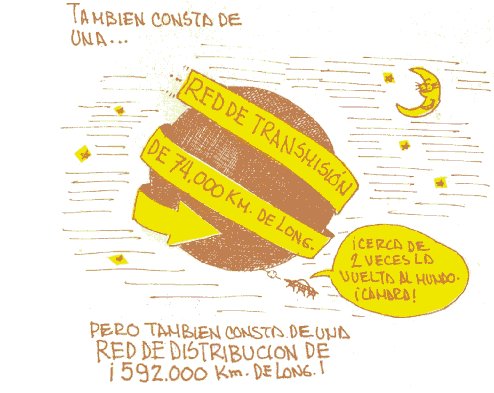 TAMBIEN CONSTA DE
UNA...
RED DE TRANSMISIÓN
DE 74.000 KM. DE LONG.
¡CERCA DE
2 VECES LA
VUELTA AL MUNDO.
¡CAMARA!
PERO TAMBIEN CONSTA DE UNA
RED DE DISTRIBUCION DE
¡592.000 Km. DE LONG.!